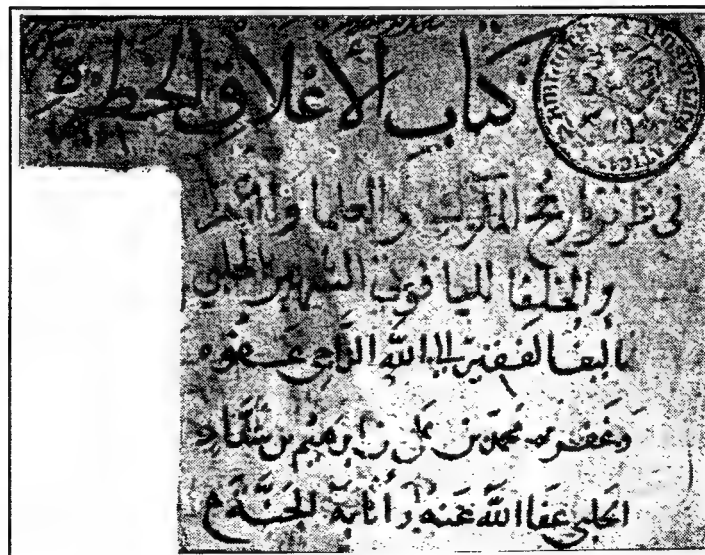 كتاب الأعلاق الخطيرة
في تواريخ الملوك والعلما والأمرا
والخلفا لليا قوت الشهير الحلبي
تاليف الفقير الى الله الراجي عفوه
وغفرنه محمد بن علي بن ابرهيم بن شداد
الحلبي عفا الله عنه وأثابه الجنة